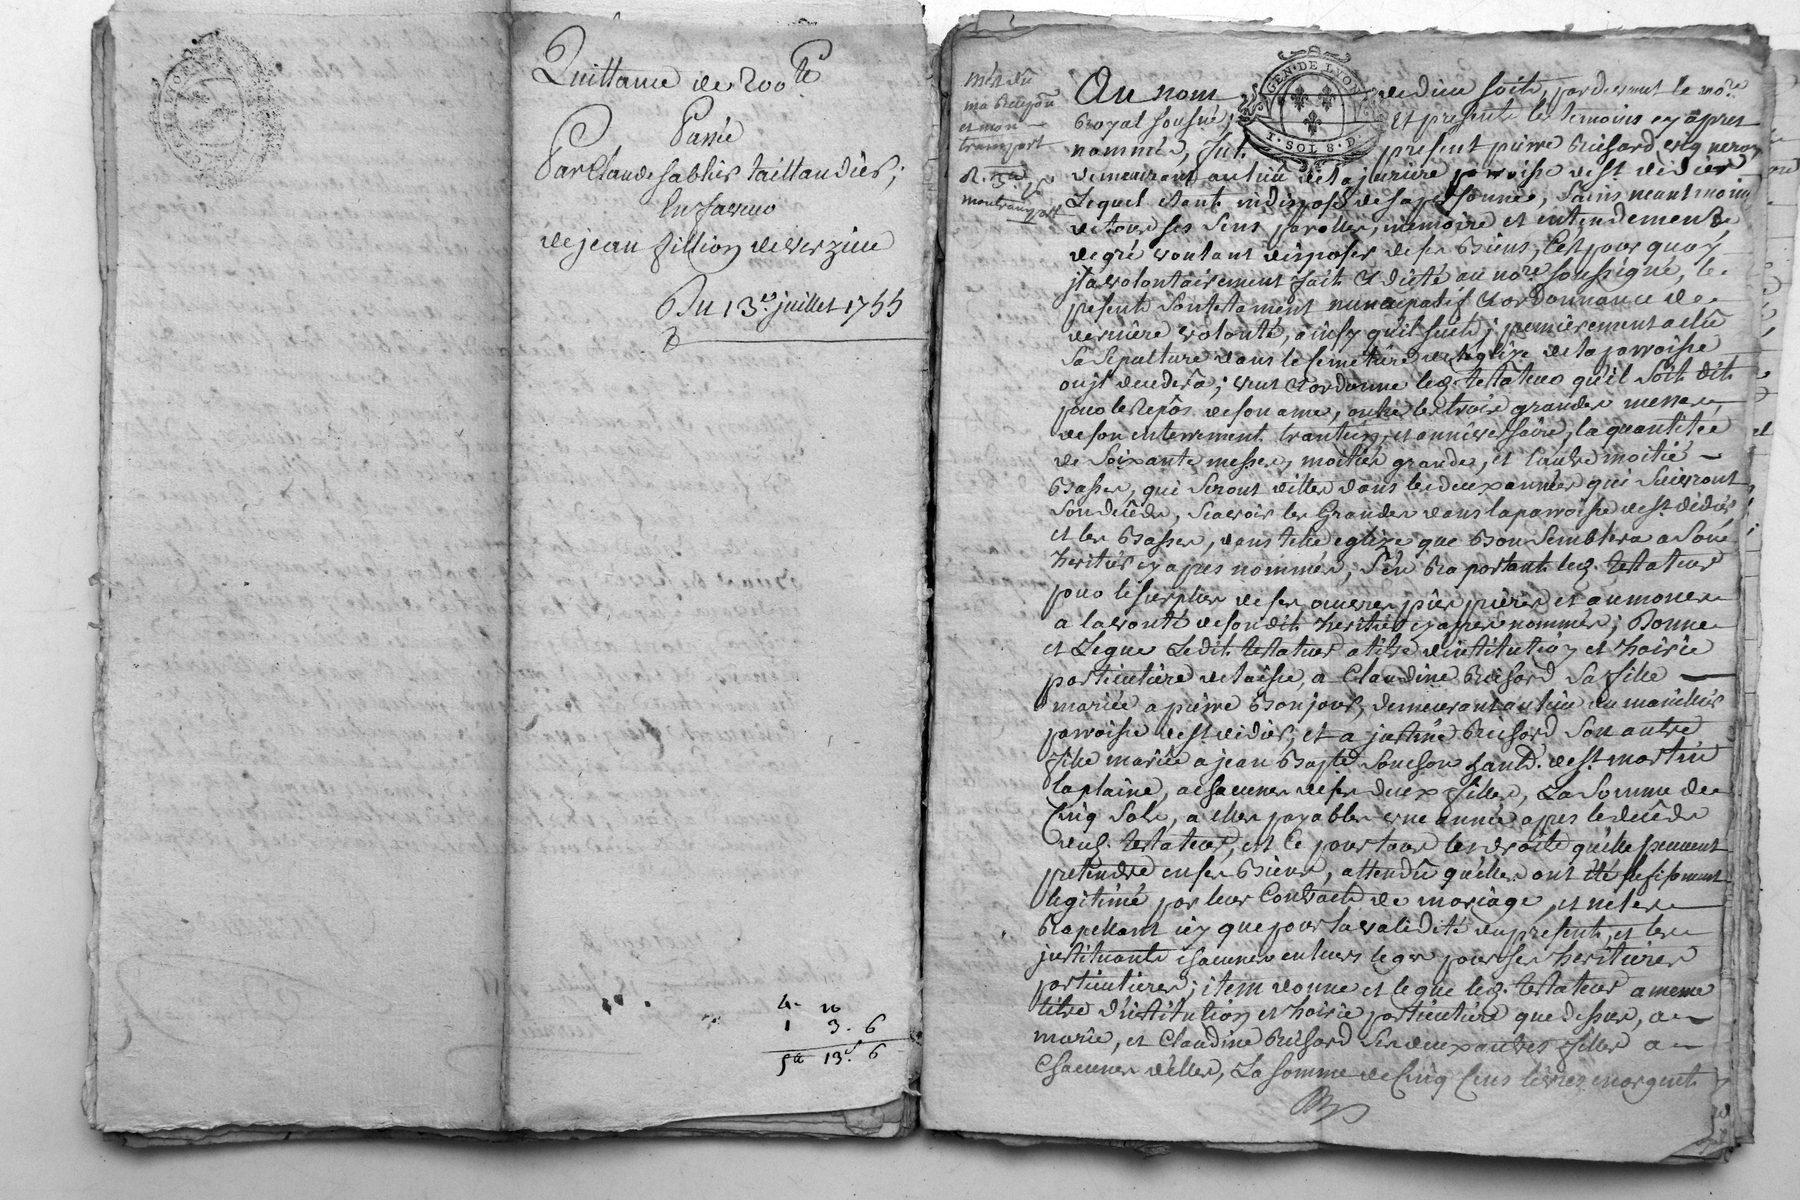 Quittance de 200ᵗᵗ
Passée
Par Claude Sablier taillandier,
En faveur
de jean fillion de verzieu
Du 13ᵉ. juillet 1755
4 - 10
1 3. 6
5ᵗᵗ 13ˢ 6
GEN. DE LYON
1. SOL 8. D.
Au nom de dieu soit, pardevant le noʳᵉ
Royal sousné, Et presents les temoins cy apres
nommés, fut present pierre
demeurant au lieu de paroisse de sᵗ didier
Lequel etant indisposé de sa personne, sains neantmoins
de tous ses sens, parolles, memoire et entendement,
de gré voulant disposer de ses Biens, C'est pourquoy
jl a volontairement fait & dicté au noʳᵉ soussigné, le
present son testament nuncupatif & ordonnance de
derniere volonté, ainsy qu'il suit; premierement a elû
sa sepulture dans le cimetiere de l'eglize de la parroisse
ou jl decedera; veut & ordonne led. testateur qu'il soit dit
pour le Repos de son ame, outre les trois grandes messes,
de son enterrement, trantain, et anniversaire, la quantitée
de soixante messes, moitié grandes, et l'autre moitié
Basses, qui seront dittes dans les deux années qui suivront
son décéds, scavoir les Grandes dans la parroisse de sᵗ didier
et les Basses, dans telle eglize que Bon semblera a son
heritier cy apres nommé, s'en Raportant led. testateur
pour le surplus de ses œuvres pies prieres et aumones
a la vonté de son dit heritier cy apres nommé; Donne
et Legue Ledit testateur a titre d'institution et hoirie
particuliere delaisse, a Claudine sa fille
mariée a pierre Bonjour, demeurant au lieu du
parroisse de sᵗ didier, et a justine son autre
fille mariée a jean Bapᵗᵉ de sᵗ. martin
laplaine, a chacunes de ses deux filles, La somme de
Cinq sols, a elles payables une année apres le décéds
dud. testateur, et Ce pour tous les droits qu'elles peuvent
pretendre en ses Biens, attendû qu'elles ont été sufisament
legitimé par leur Contracts de mariage, et ne les
Rapellant icy que pour la validité du present, et les
jnstituants chacunes en leurs leges pour ses heritieres
particulieres; item donne et legue led. testateur a meme
titre d'institution et hoirie particuliere que dessus, a
marie, et Claudine ses deux autres filles a
Chacunes d'elles, La somme de Cinq Cens livres en argent